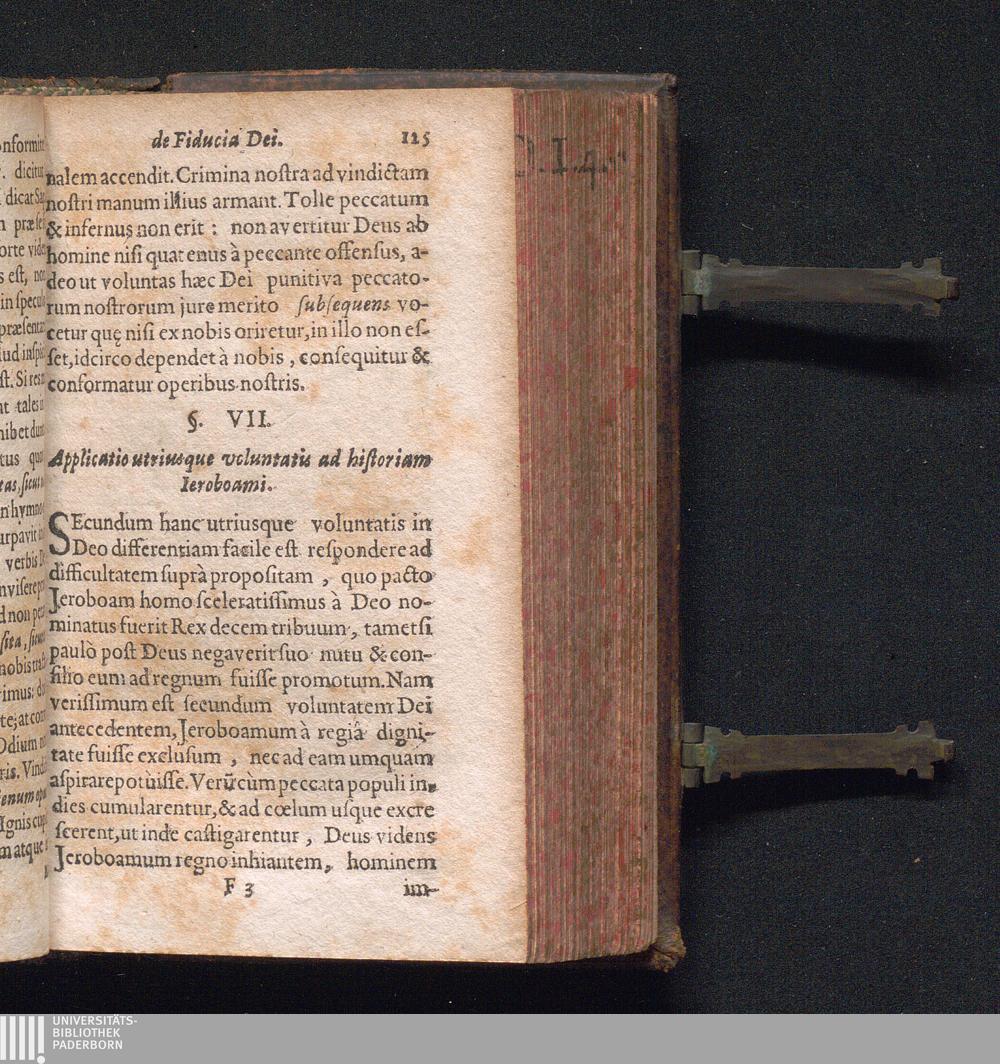 de Fiducia Dei. 125
nalem accendit. Crimina noſtra ad vindictam
noſtri manum illius armant. Tolle peccatum
& infernus non erit : non avertitur Deus ab
homine niſi quatenus à peccante offenſus, a-
deo ut voluntas hæc Dei punitiva peccato-
rum noſtrorum jure merito ſubſequens vo-
cetur quę niſi ex nobis oriretur, in illo non eſ-
ſet, idcirco dependet à nobis, conſequitur &
conformatur operibus noſtris.
§. VII.
Applicatio utriusque voluntatis ad hiſtoriam
Ieroboami.
SEcundum hanc utriusque voluntatis in
Deo differentiam facile eſt reſpondere ad
difficultatem ſuprà propoſitam, quo pacto
Jeroboam homo ſceleratiſſimus à Deo no-
minatus fuerit Rex decem tribuum, tametſi
paulò poſt Deus negaverit ſuo nutu & con-
ſilio eum ad regnum fuiſſe promotum. Nam
veriſſimum eſt ſecundum voluntatem Dei
antecedentem, Jeroboamum à regiâ digni-
tate fuiſſe excluſum, nec ad eam umquam
aſpirare potuiſſe. Verũ cùm peccata populi in
dies cumularentur, & ad cœlum uſque excre
ſcerent, ut inde caſtigarentur, Deus videns
Jeroboamum regno inhiantem, hominem
F 3 im-
UNIVERSITÄTS-
BIBLIOTHEK
PADERBORN